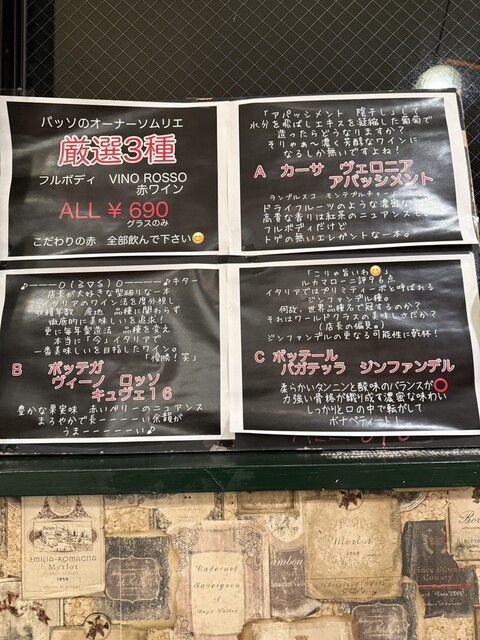 パッソのオーナーソムリエ
厳選3種
フルボディ VINO ROSSO
赤ワイン
ALL ¥ 690
グラスのみ
こだわりの赤 全部飲んで下さい
「アパッシメント 陰干し」して
水分を飛ばしエキスを凝縮した葡萄で
造ったらどうなりますか?
そりゃぁ〜濃く芳醇なワインに
なるしか無いですよね!
A カーサ ヴェロニア
アパッシメント
ドライフルーツのような濃密な
高貴な香りは紅茶のニュアンスも
フルボディだけど
トゲの無いエレガントな一本。
店主が大好きな型破りな一本
イタリアのワイン法を度外視し
収穫年数 産地 品種に関わらず
徹底的に美味しいを追求!
更に毎年製造法 品種を変え
本当に「今」イタリアで
一番美味しいを目指したワイン。
「優勝!笑」
B ボッテガ
ヴィーノ ロッソ
キュヴェ16
豊かな果実味 赤いベリーのニュアンス
まろやかで長ーーーーい余韻が
うまーーーーーい♪
「こりゃ旨いわ」
ルカマローニ評96点
イタリアではプリミティーボと呼ばれる
ジンファンデル種。
何故、世界品種名で冠するのか?
それはワールドクラスの美味しさだか?
(店長の偏見)
ジンファンデルの更なる可能性に乾杯!
C ポッテール
バガテッラ ジンファンデル
柔らかいタンニンと酸味のバランスが⭕
力強い骨格が織り成す濃密な味わい
しっかりと口の中で転がして
ボナペティート!
EMILIA-ROMAGNA
Merlot
1950
Cabernet
Sauvignon
Merlot